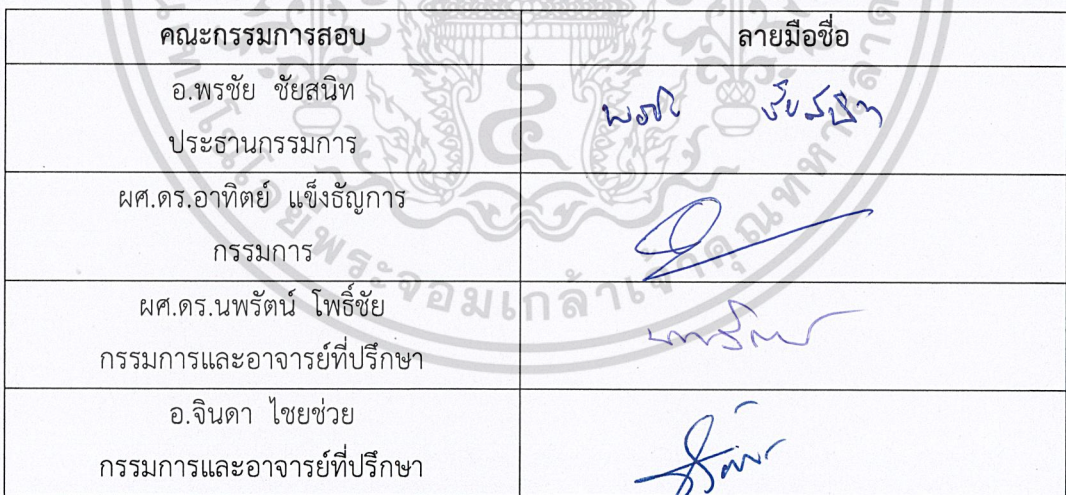 คณะกรรมการสอบ ลายมือชื่อ
อ.พรชัย ชัยสนิท
ประธานกรรมการ
พรชัย ชัยสนิท
ผศ.ดร.อาทิตย์ แข็งธัญการ
กรรมการ
ผศ.ดร.นพรัตน์ โพธิ์ชัย
กรรมการและอาจารย์ที่ปรึกษา
นพรัตน์
อ.จินดา ไชยช่วย
กรรมการและอาจารย์ที่ปรึกษา
พระจอมเกล้าเจ้าคุณทหารลาด